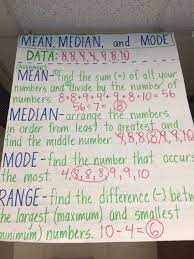 MEAN, MEDIAN, and MODE
DATA: 8,8,4,9,8,10
(average)
MEAN - find the sum (+) of all your
numbers and divide by the number of
numbers. 8+8+9+4+9+8+10=56
56÷7=8
MEDIAN - arrange the numbers
in order from least to greatest and
find the middle number.
MODE - find the number that occurs
the most. 4,8,8,8,9,9,10
RANGE - find the difference (-) betw
the largest (maximum) and smallest
minimum) numbers. 10-4=6